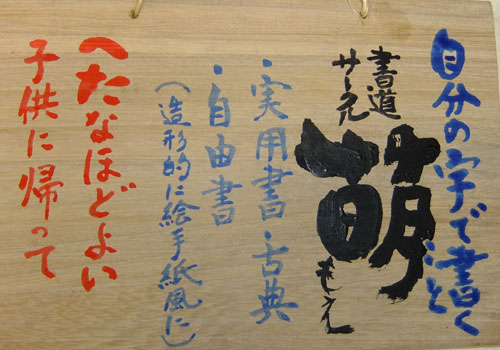 自分の字で書くこと
書道
サークル
萌
もえ
・実用書・古典
・自由書
(造形的に絵手紙風に)
へたなほどよい
子供に帰って